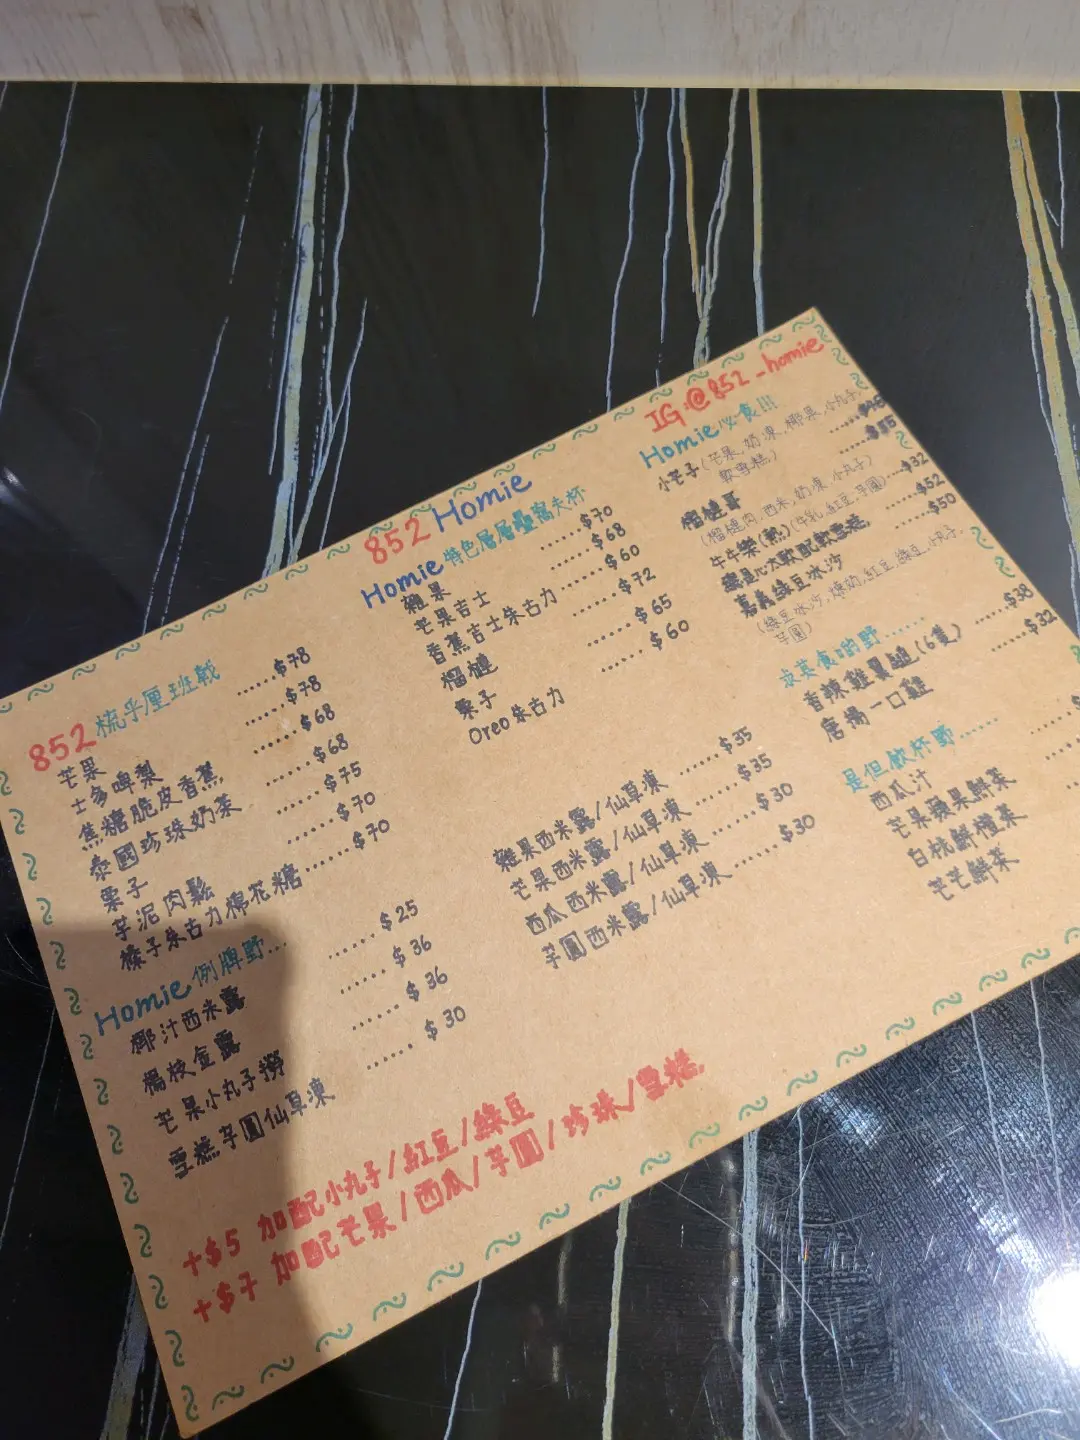 852 Homie
IG:@852_homie
852 梳乎厘班戟
芒果 ......$78
士多啤梨 ......$78
焦糖脆皮香蕉 ......$68
泰國珍珠奶茶 ......$68
栗子 ......$75
芋泥肉鬆 ......$70
榛子朱古力棉花糖 ......$70
Homie 例牌野...
椰汁西米露 ......$25
楊枝金露 ......$36
芒果小丸子撈 ......$36
雪糕芋圓仙草凍 ......$30
Homie 特色層層疊窩夫杯
雜果 ......$70
芒果吉士 ......$68
香蕉吉士朱古力 ......$60
榴槤 ......$72
栗子 ......$65
Oreo朱古力 ......$60
雜果西米露/仙草凍 ......$35
芒果西米露/仙草凍 ......$35
西瓜西米露/仙草凍 ......$30
芋圓西米露/仙草凍 ......$30
Homie必食!!!
小芒子(芒果,奶凍,椰果,小丸子,
軟雪糕)
榴槤哥
(榴槤肉,西米,奶凍,小丸子)
牛牛樂(熱)(牛乳,紅豆,芋圓) ......$32
軟配軟雪糕 ......$52
嘉義綠豆冰沙 ......$50
(綠豆冰沙,煉奶,紅豆,綠豆,小丸子,
芋圓)
求其食啲野......
香辣雞翼鎚(6隻) ......$38
唐揚一口雞 ......$32
是但飲杯野......
西瓜汁
芒果蘋果鮮茶
白桃鮮橙茶
芒芒鮮茶
+$5 加配小丸子/紅豆/綠豆
+$7 加配芒果/西瓜/芋圓/珍珠/雪糕.